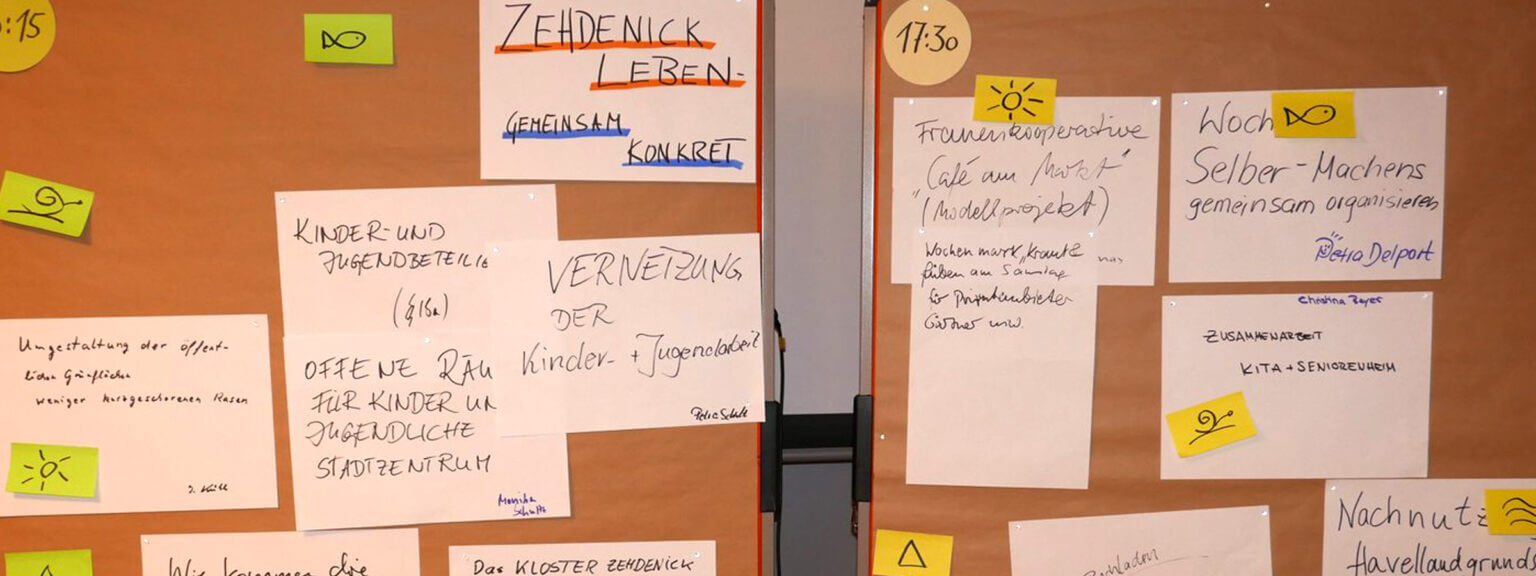 :15
ZEHDENICK
LEBEN-
GEMEINSAM
KONKRET
KINDER- UND
JUGENDBETEILIG
(§18a)
VERNETZUNG
DER
Kinder- + Jugendarbeit
OFFENE RÄU
FÜR KINDER UN
JUGENDLICHE
STADTZENTRUM
Monika
Schultz
Umgestaltung der öffent-
lichen Grünflächen
weniger kurzgeschorenen Rasen
Wie kommen die
Das KLOSTER ZEHDENICK
17:30
Frauenkooperative
„Café am Markt"
(Modellprojekt)
Wochenmarkt „Kraut &
Rüben am Samstag
für Privatanbieter
Gärtner usw.
Woch
Selber-Machens
gemeinsam organisieren
Petra Delport
Christina Beyer
ZUSAMMENARBEIT
KITA + SENIORENHEIM
Nachnutz
Havellandgrunds